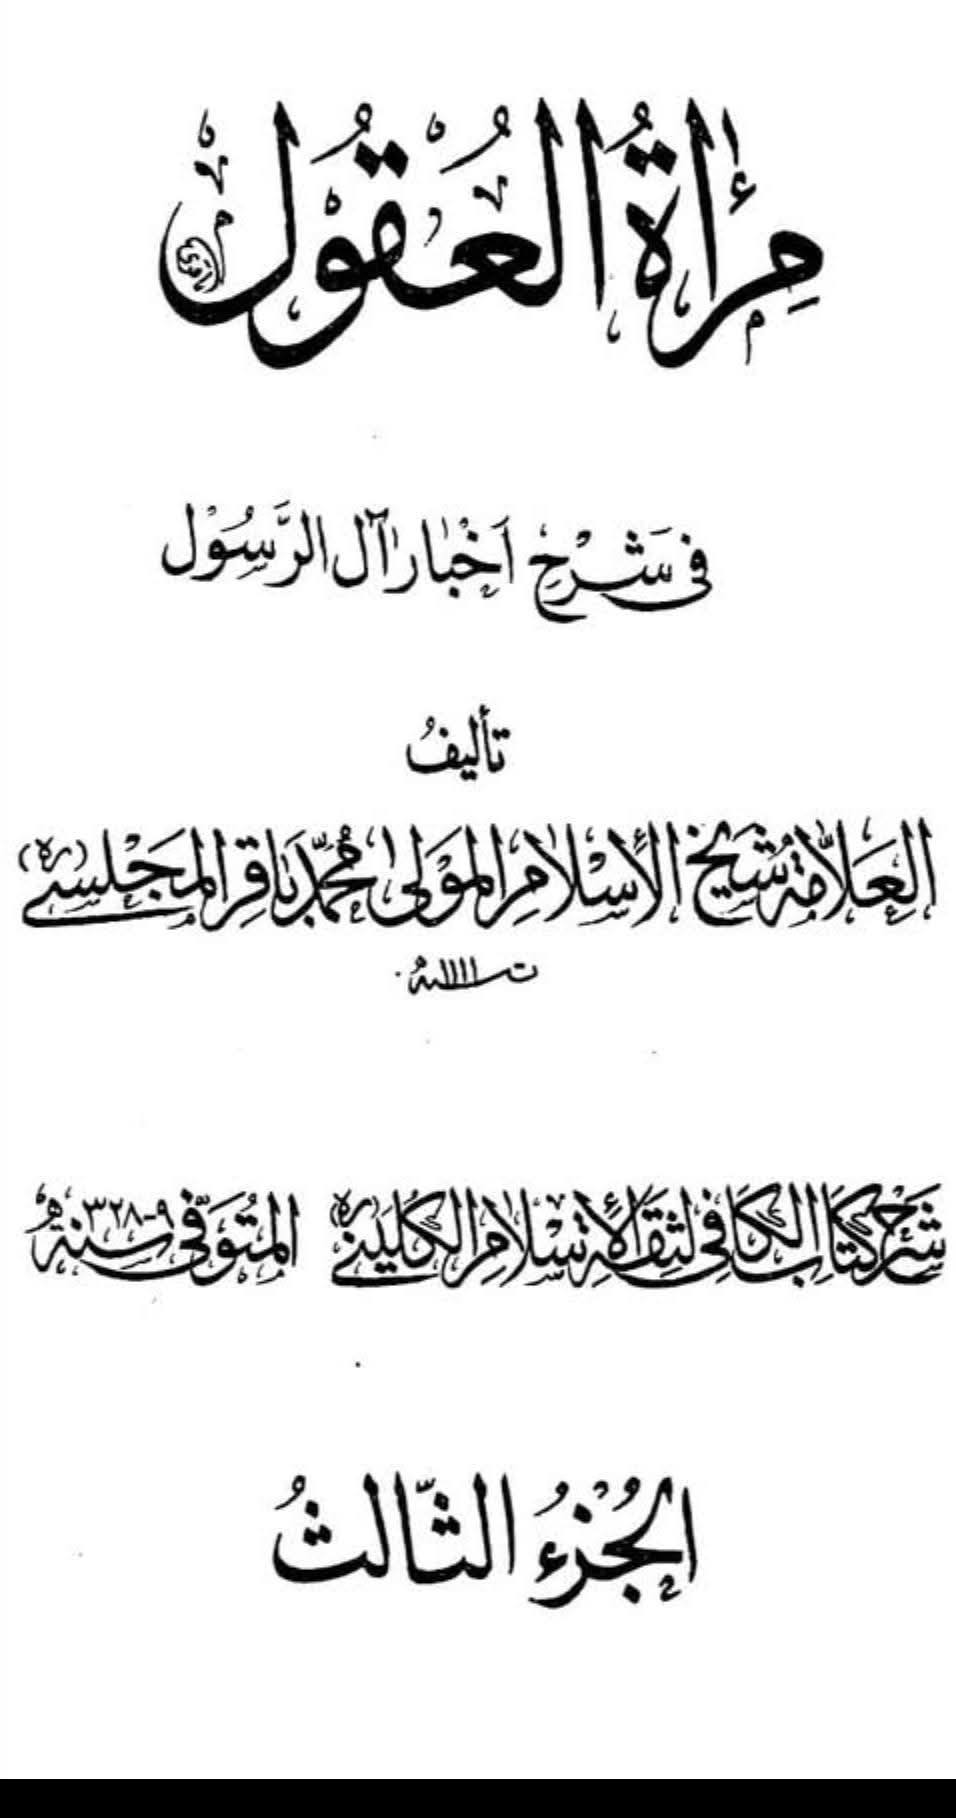 مِرْآةُ العُقُول
فى شَرْحِ اَخْبٰارِ آلِ الرَّسُوْل
تأليفُ
العَلاّمَة شَيْخ الاِسْلامِ المَوْلى مُحَمَّد بٰاقِر المَجْلِسى (ره)
ت ١١١١ ه
شَرْح كِتَابِ الكَافِي لِثِقَةِ الاِسْلامِ الكُلَيْنى (ره) المُتَوَفّى سنة ٩-٣٢٨ ه
الجُزْءُ الثّالثُ